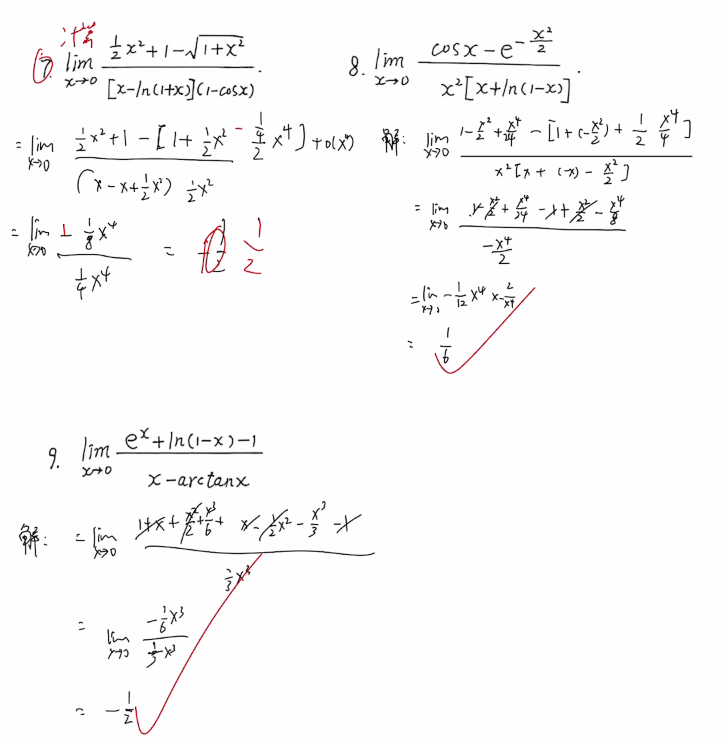 计算
7. lim x→0 (½x²+1−√(1+x²)) / ([x−ln(1+x)](1−cosx)).
= lim x→0 (½x²+1−[1+½x²−(¼/2)x⁴]+o(x⁴)) / ((x−x+½x²) ½x²)
= lim x→0 (⅛x⁴) / (¼x⁴) = ½
8. lim x→0 (cosx−e^(−x²/2)) / (x²[x+ln(1−x)]).
解: lim x→0 (1−x²/2+x⁴/24−[1+(−x²/2)+½ x⁴/4]) / (x²[x+(−x)−x²/2])
= lim x→0 (1−x²/2+x⁴/24−1+x²/2−x⁴/8) / (−x⁴/2)
= lim x→0 −1/12 x⁴ × −2/x⁴
= 1/6
9. lim x→0 (eˣ+ln(1−x)−1) / (x−arctanx)
解: = lim x→0 (1+x+x²/2+x³/6+ x−½x²−x³/3−1) / (⅓x³)
= lim x→0 (−⅙x³) / (⅓x³)
= −½